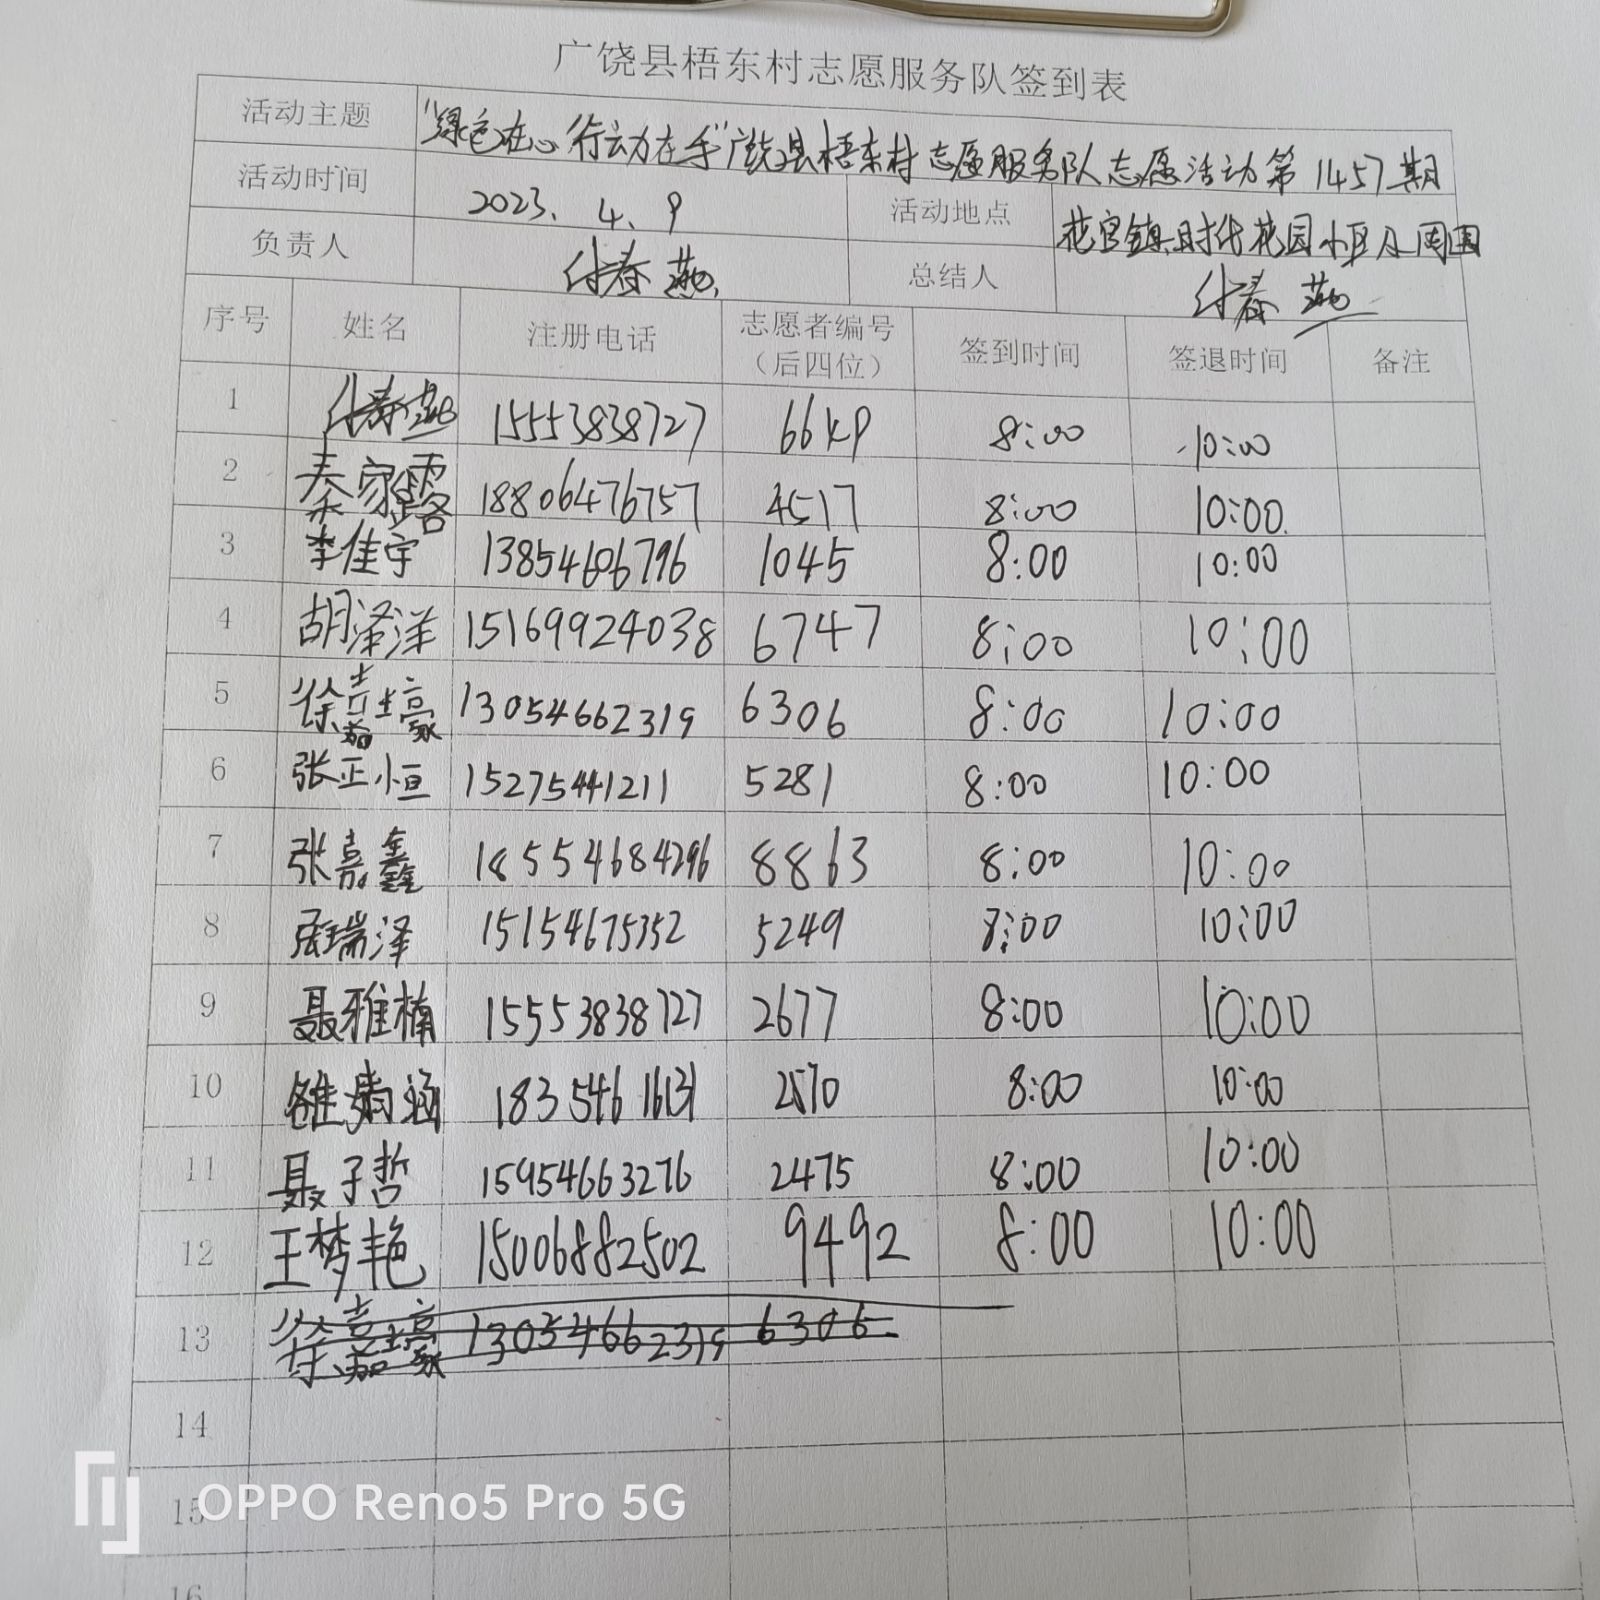 广饶县梧东村志愿服务队签到表
活动主题 "绿色在心 行动在手"广饶县梧东村志愿服务队志愿活动第1457期
活动时间 2023.4.9 活动地点 花官镇时代花园小区及周围
负责人 付春燕 总结人 付春燕
序号 姓名 注册电话 志愿者编号（后四位） 签到时间 签退时间 备注
1 付春燕 15553838727 66KP 8:00 10:00
2 秦家露 18806476757 4517 8:00 10:00
3 李佳宇 13854606796 1045 8:00 10:00
4 胡泽洋 15169924038 6747 8:00 10:00
5 徐嘉壕 13054662319 6306 8:00 10:00
6 张正恒 15275441211 5281 8:00 10:00
7 张嘉鑫 18554684296 8863 8:00 10:00
8 张瑞泽 15154675352 5249 8:00 10:00
9 聂雅楠 15553838727 2677 8:00 10:00
10 涵 18354616131 2570 8:00 10:00
11 聂子哲 15954663276 2475 8:00 10:00
12 王梦艳 15006882502 9492 8:00 10:00
13 徐嘉壕 13054662319 6306
14
15
16
OPPO Reno5 Pro 5G